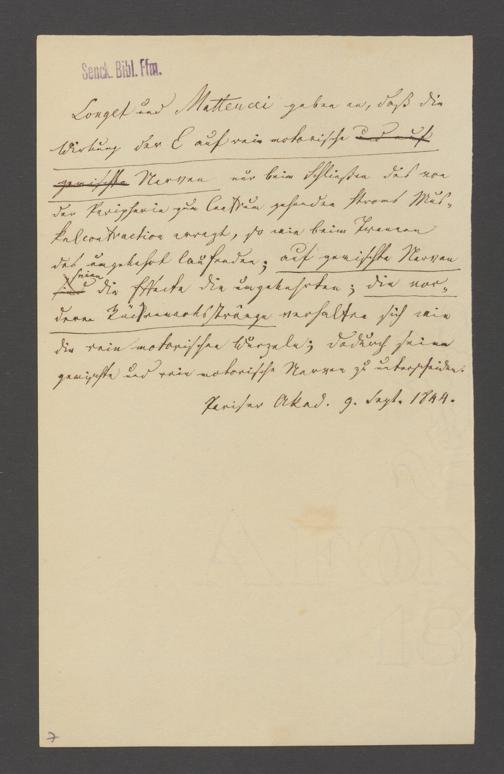 Senck. Bibl. Ffm.
Longet und Matteucci geben an, daß die
Wirkung der E auf rein motorische und auf
gemischte Nerven nur beim Schließen des von
der Peripherie zum Centrum gehenden Stroms Mus-
kelcontraction erregt, so wie beim Trennen
des umgekehrt laufenden; auf gemischte Nerven
seien
sind die Effecte die umgekehrten; die vor-
deren Rückenmarksstränge verhalten sich wie
die rein motorischen Wurzeln; dadurch seien
gemischte und rein motorische Nerven zu unterscheiden.
Pariser Akad. 9. Sept. 1844.
7